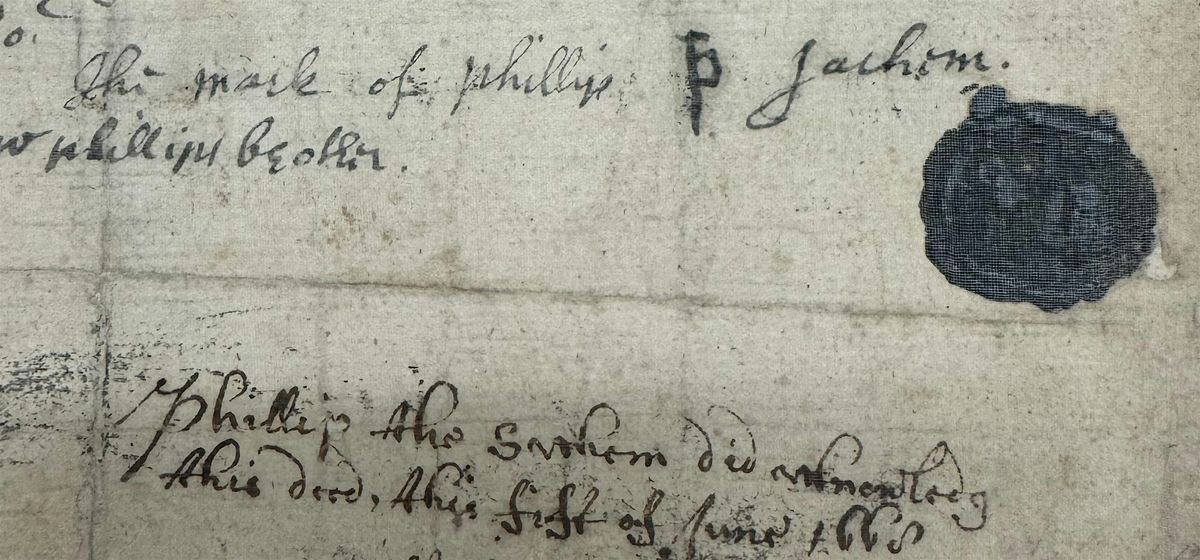 o.
The mark of phillip P Sachem.
phillips brother.
Phillip the Sachem did acknowledg
this deed, this fift of June 1668